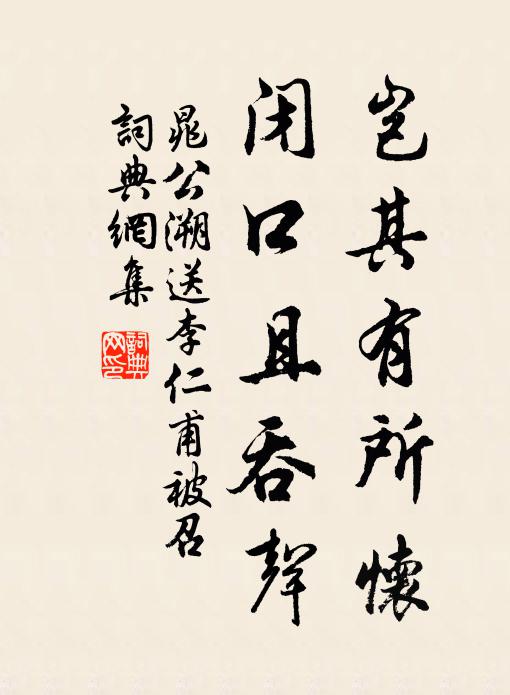 豈其有所懷
閉口且吞聲
晁公溯送李仁甫被召
詞典網集
詞典
网印